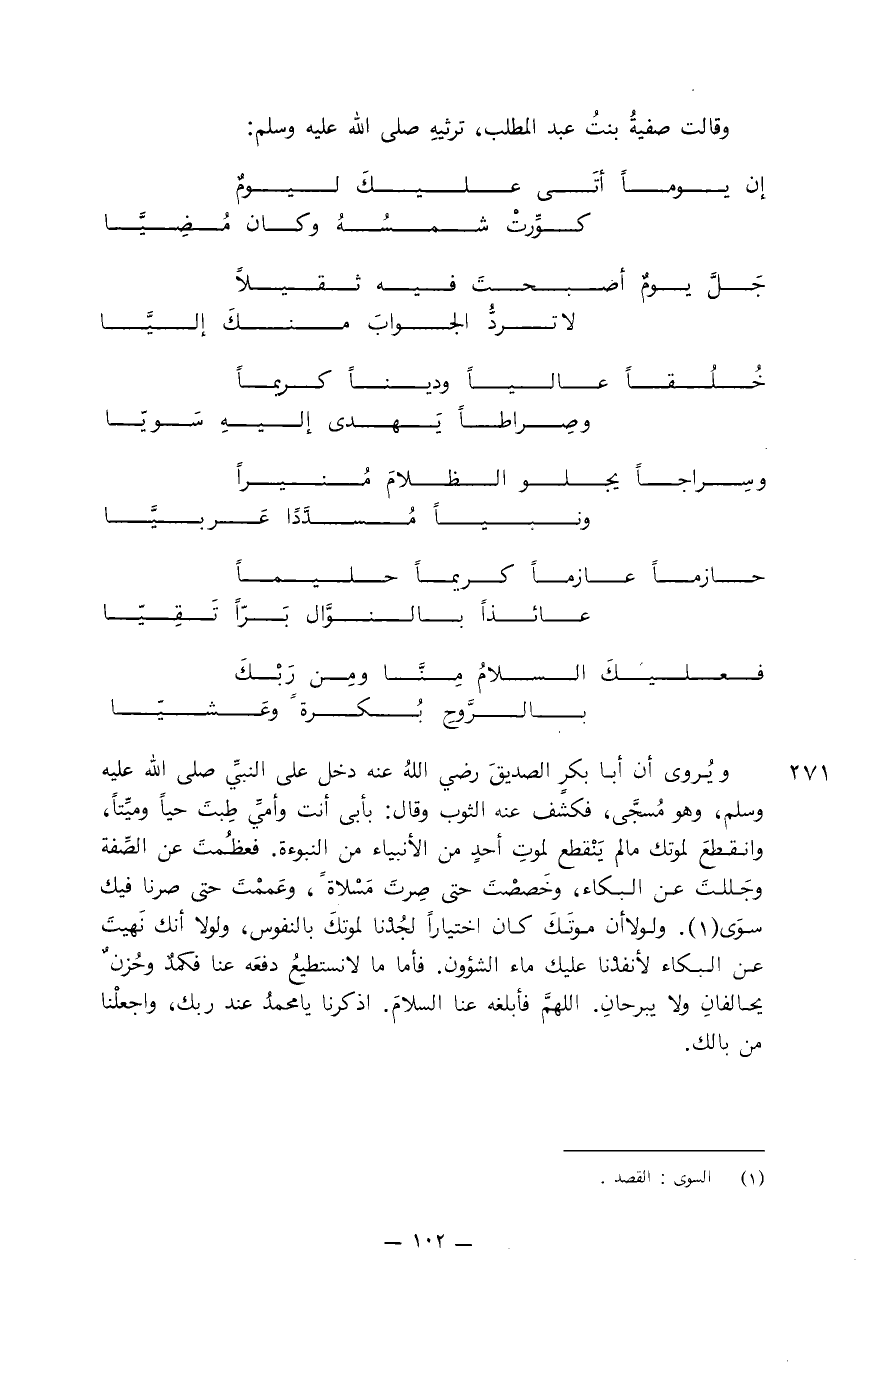 وقالت صفيةُ بنتُ عبد المطلب، ترثيهِ صلى الله عليه وسلم:
إن يوماً أتَى عليكَ ليومٌ
كوِّرتْ شمسُهُ وكان مُضِيَّا
جَلَّ يومٌ أصبحتَ فيه ثقيلاً
لا تردُّ الجوابَ منكَ إليَّا
خُلُقاً عالياً وديناً كريماً
وصِراطاً يَهدى إليهِ سَويّا
وسِراجاً يجلو الظلامَ مُنيراً
ونبياً مُسدَّدًا عَربيَّا
حازماً عازماً كريماً حليماً
عائذاً بالنوَّال بَرّاً تَقِيّا
فعليكَ السلامُ مِنَّا ومِن رَبْكَ
بالرَّوحِ بُكرةً وعَشيّا
٢٧١ ويُروى أن أبا بكرٍ الصديقَ رضي اللهُ عنه دخل على النبيِّ صلى الله عليه
وسلم، وهو مُسجَّى، فكشَف عنه الثوب وقال: بأبى أنت وأميِّ طِبتَ حياً وميِّتاً،
وانقطعَ لموتك مالم يَنْقطع لموتِ أحدٍ من الأنبياء من النبوءة. فعظُمتَ عن الصِّفة
وجَللتَ عن البكاء، وخَصصْتَ حتى صِرتَ مَسْلاةً، وعَممْتَ حتى صرنا فيك
سوَى(١). ولولاأن موتَكَ كان اختياراً لجُدْنا لموتكَ بالنفوس، ولولا أنك نَهيتَ
عن البكاء لأنفدْنا عليك ماء الشؤون. فأما ما لانستطيعُ دفعَه عنا فكمدٌ وحُزنٌ
يحالفانِ ولا يبرحانِ. اللهمَّ فأبلغه عنا السلامَ. اذكرنا يامحمدُ عند ربك، واجعلْنا
من بالك.
(١) السوى : القصد .
— ١٠٢ —